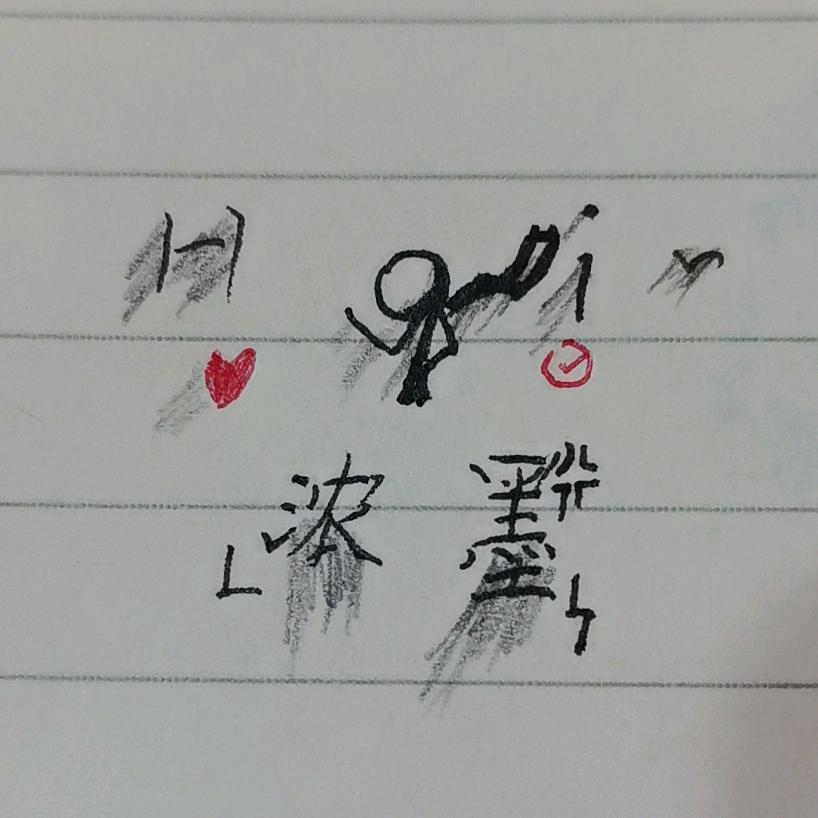 Hi~
浓墨